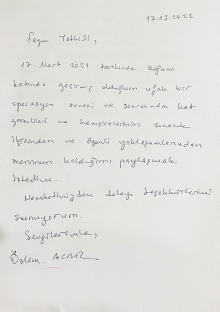 17.03.2021
Sayın Yetkili,
17 Mart 2021 tarihinde doğum
katında geçirmiş olduğum ufak bir
operasyon öncesi ve sonrasında kat
görevlileri ve hemşirelerinin
ilgisinden ve özenli yaklaşımlarından
memnun kaldığımı paylaşmak
istedim.
Nezaketinizden dolayı teşekkürlerimi
sunuyorum.
Sevgilerimle,
Özlem